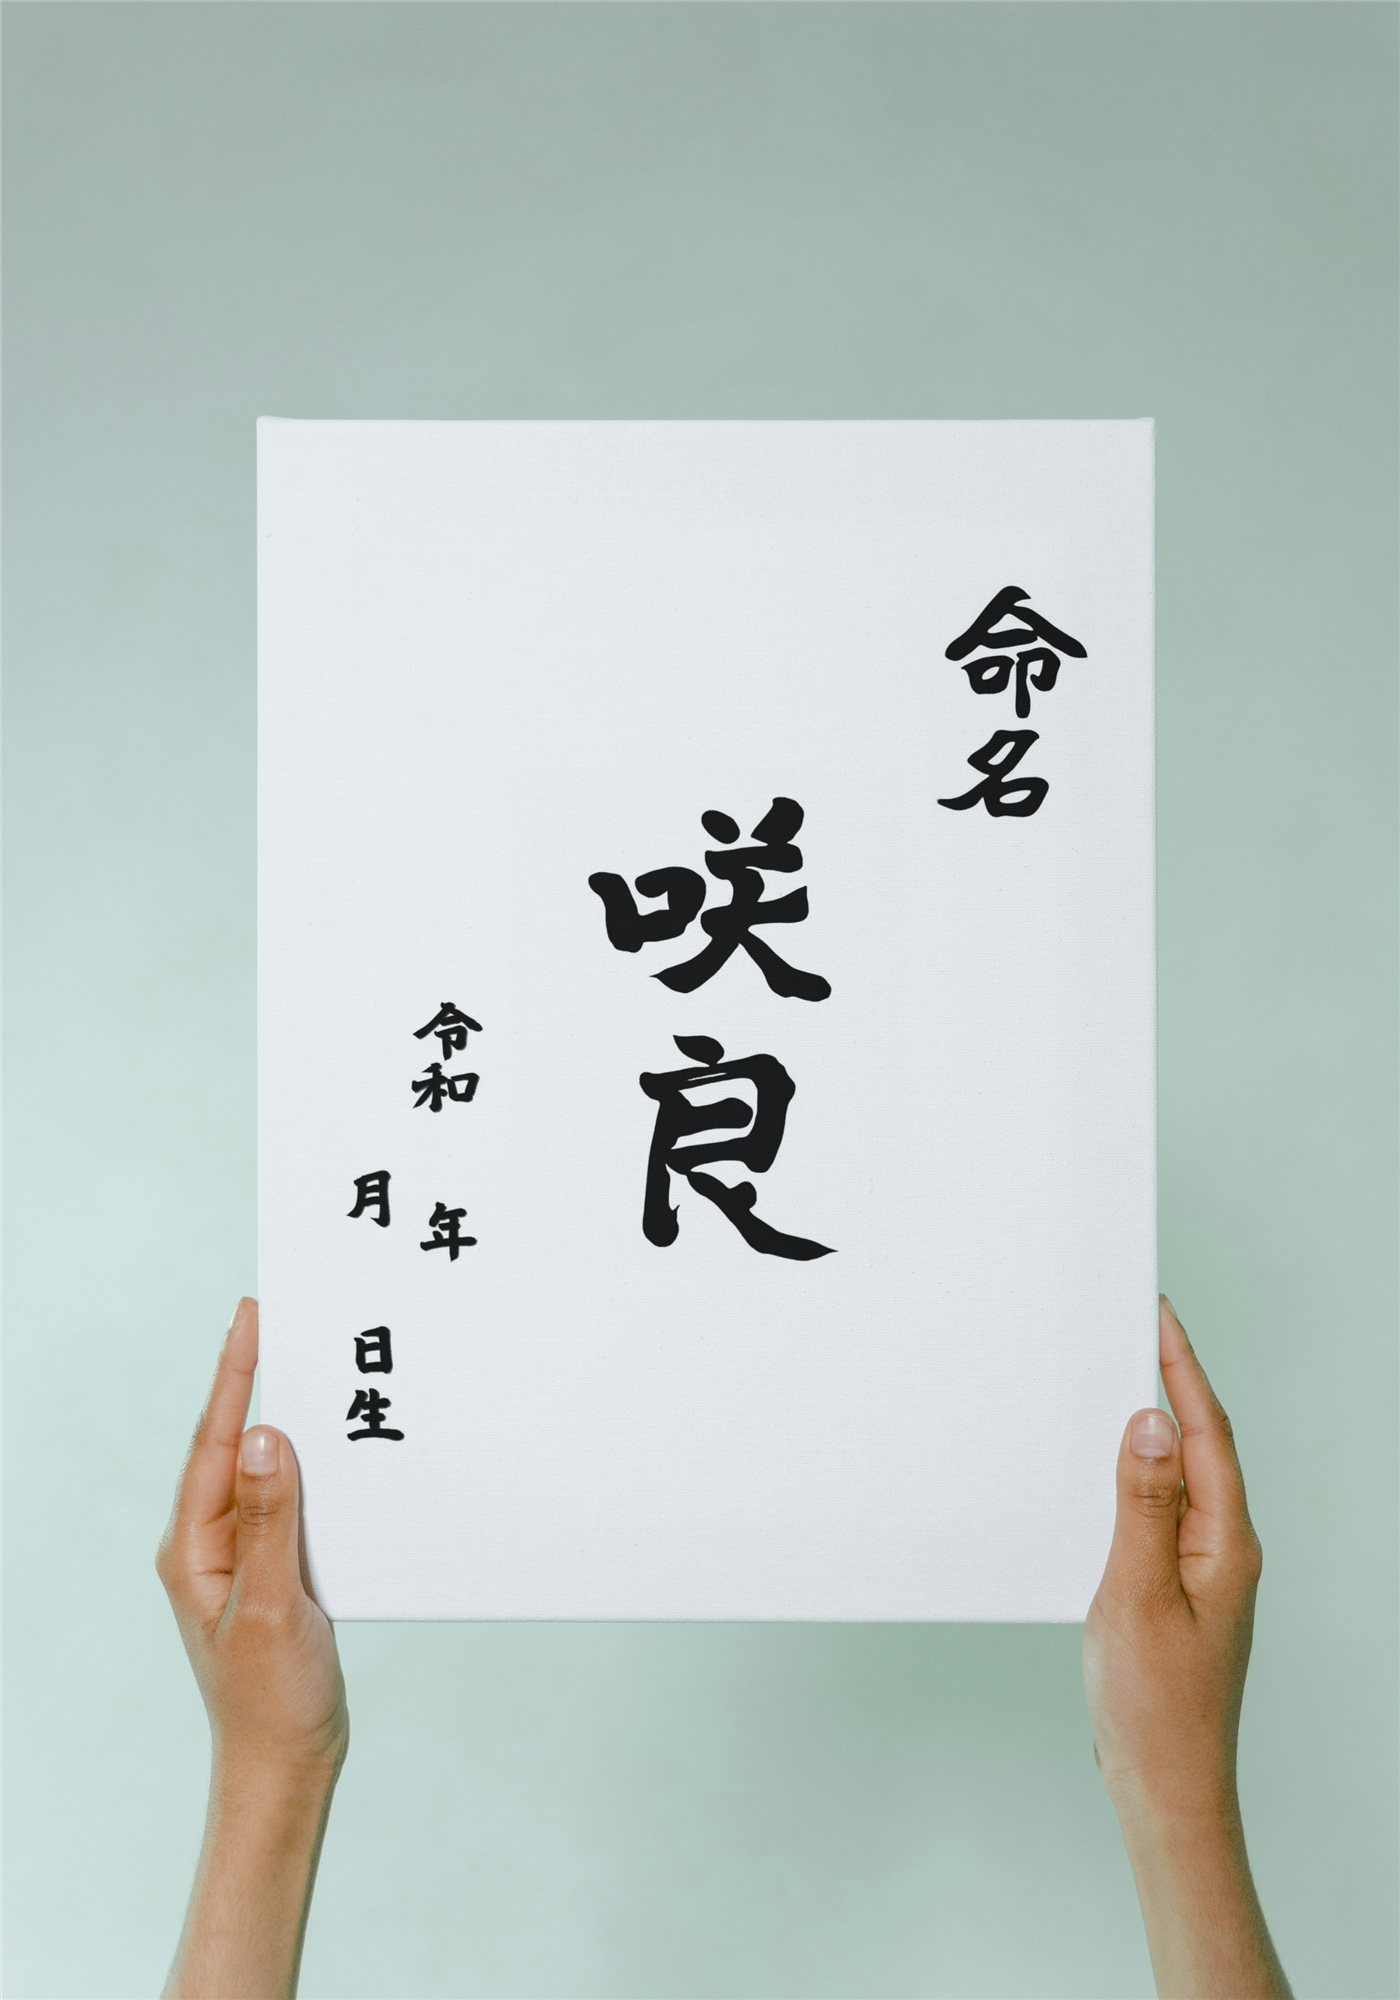 命名
咲良
令和 年
月 日生